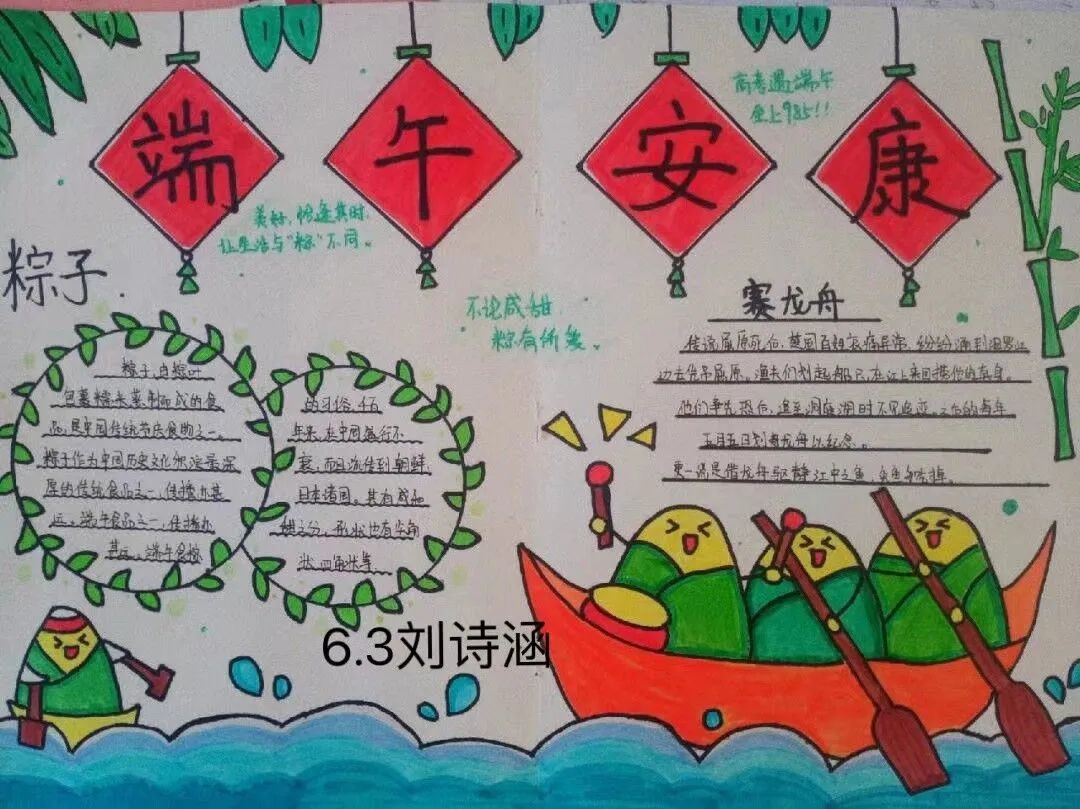 端午安康
高考遇端午
坐上985!!
美好,恰逢其时,
让生活与"粽"不同。
粽子
不论咸甜
粽有所爱。
赛龙舟
粽子,由粽叶
包裹糯米蒸制而成的食
品,是中国传统节庆食物之一。
粽子作为中国历史文化积淀最深
厚的传统食品之一,传播亦甚
远。端午食品之一,传播亦
甚远。端午食粽
的习俗,
年来,在中国盛行不
衰,而且流传到朝鲜
日本诸国。其有咸和
甜之分,形状也有尖角
状、四角状等
传说屈原死后,楚国百姓哀痛异常,纷纷涌到汨罗江
边去凭吊屈原。渔夫们划起船只,在江上来回
他们争先恐后,追至洞庭湖时不见
五月五日划龙舟以纪念。
更一说是借龙舟驱
6.3刘诗涵